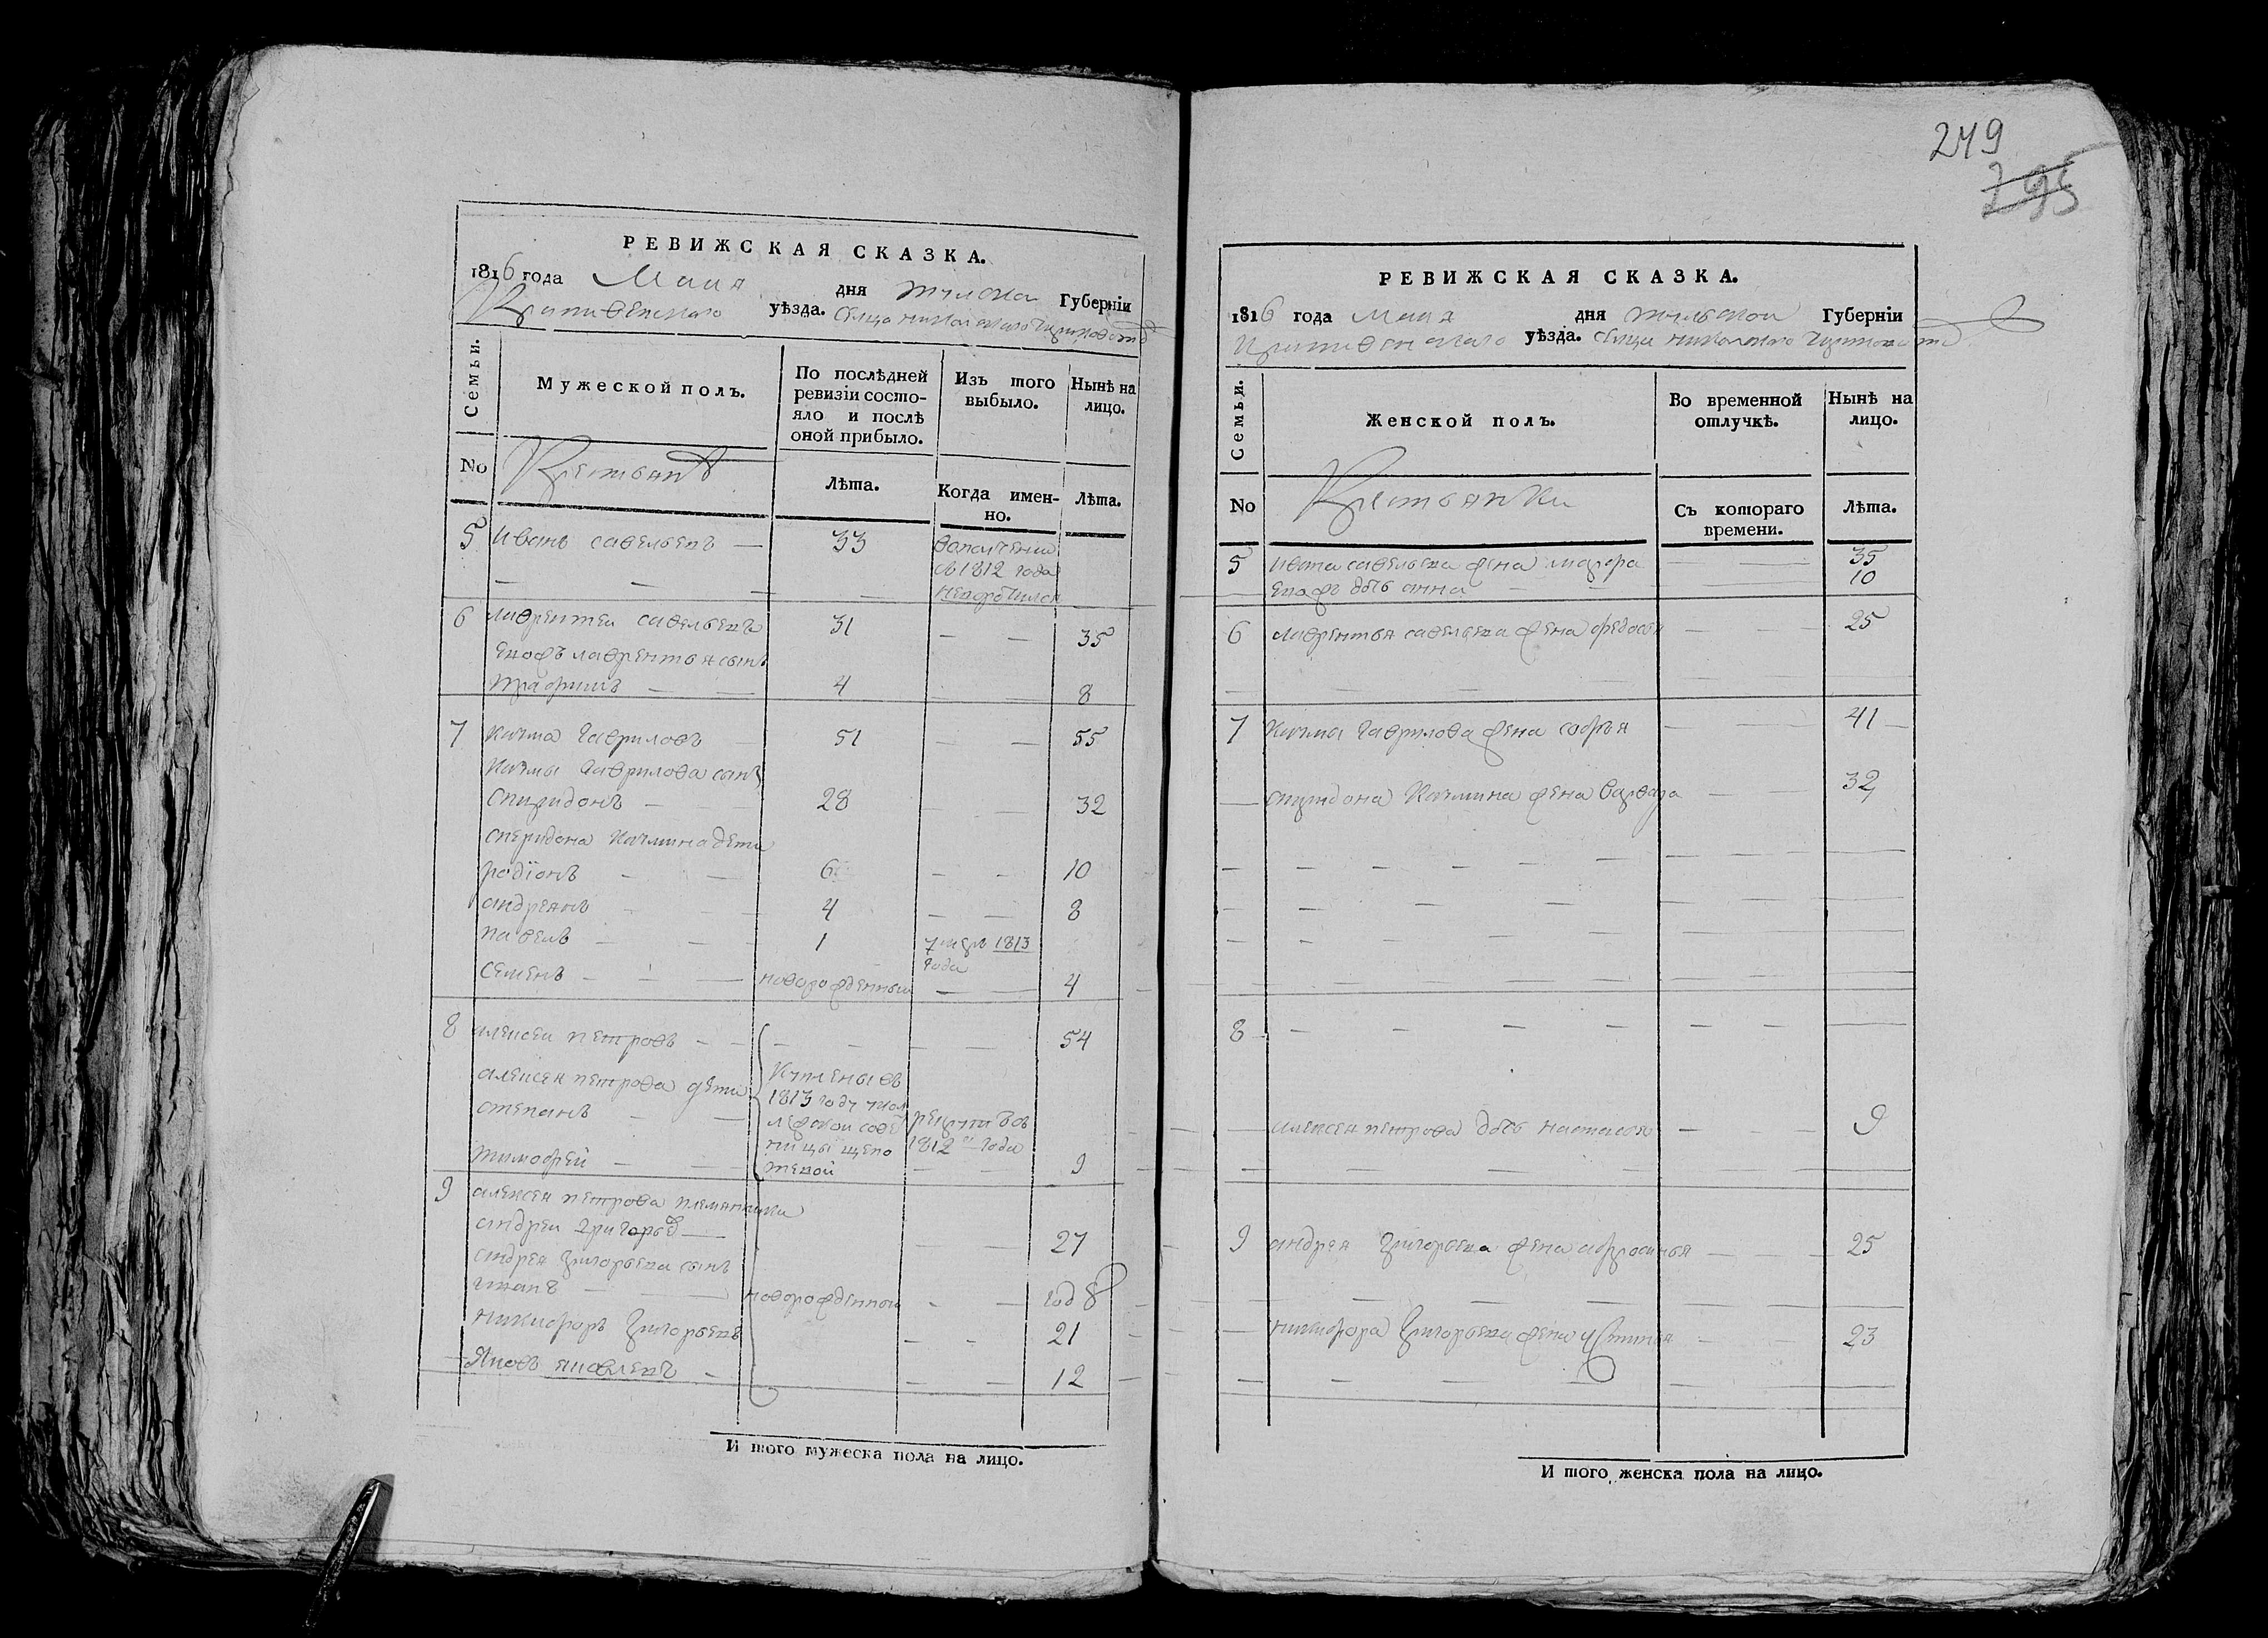 РЕВИЖСКАЯ СКАЗКА.
1816 года Маия дня тулска Губерніи
Крапивенскаго уѣзда. Сельца николскаго
Семьи.
Мужеской полъ.
По послѣдней ревизіи состо-
яло и послѣ
оной прибыло.
Изъ того
выбыло.
Нынѣ на
лицо.
No
Крестьянѣ
Лѣта.
Когда имен-
но.
Лѣта.
5 Иванъ савельевъ — 33
в 1812 года
6 лаврентеи савельевъ 31 — — 35
Евофъ лаврентья сынъ
трафимъ — — 4 8
7 Кузма гавриловъ 51 — — 55
Кузмы гаврилова сынъ
спиридонъ — 28 32
спиридона Кузмина дети
родїонъ — — 6 — — 10
андреянъ 4 — — 8
павелъ — — 1 умръ 1813
года
семенъ — — — новорожденный — — 4
8 алексеи петровъ — — 54
алексея петрова дети
степанъ — —
Куплены въ
1813 году
рекруты въ
1812 года
тимофей — — 9
9 алексея петрова племянники
андреи григорьев — 27
андрея григорьева сынъ
новорожденной — — год
никифоръ григорьевъ — — 21
Яковъ — — — 12
И того мужеска пола на лицо.
249
795
РЕВИЖСКАЯ СКАЗКА.
1816 года маия дня тульской Губерніи
крапивенскаго уѣзда. сельца николскаго
Семьи.
Женской полъ.
Во временной
отлучкѣ.
Нынѣ на
лицо.
No
Крестьянки
Съ котораго
времени.
Лѣта.
5 Ивана савельева жена мавра — — 35
Евофъ дочь анна — — 10
6 лаврентья савельева жена федосья — — 25
7 Кузмы гаврилова жена софья — — 41
спиридона Кузмина жена варвара — — 32
8
алексея петрова дочь настасья — — 9
9 андрея григорьева жена афросинья — — 25
никифора григорьева жена устинья — — 23
И того женска пола на лицо.